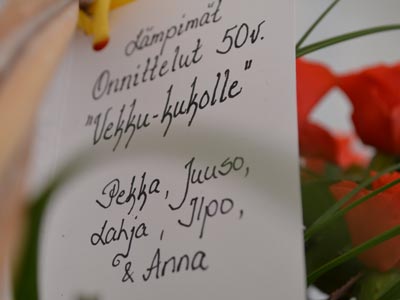 Lämpimät
Onnittelut 50v.
"Vekku-kukolle"
Pekka, Juuso,
Lahja, Ilpo,
& Anna